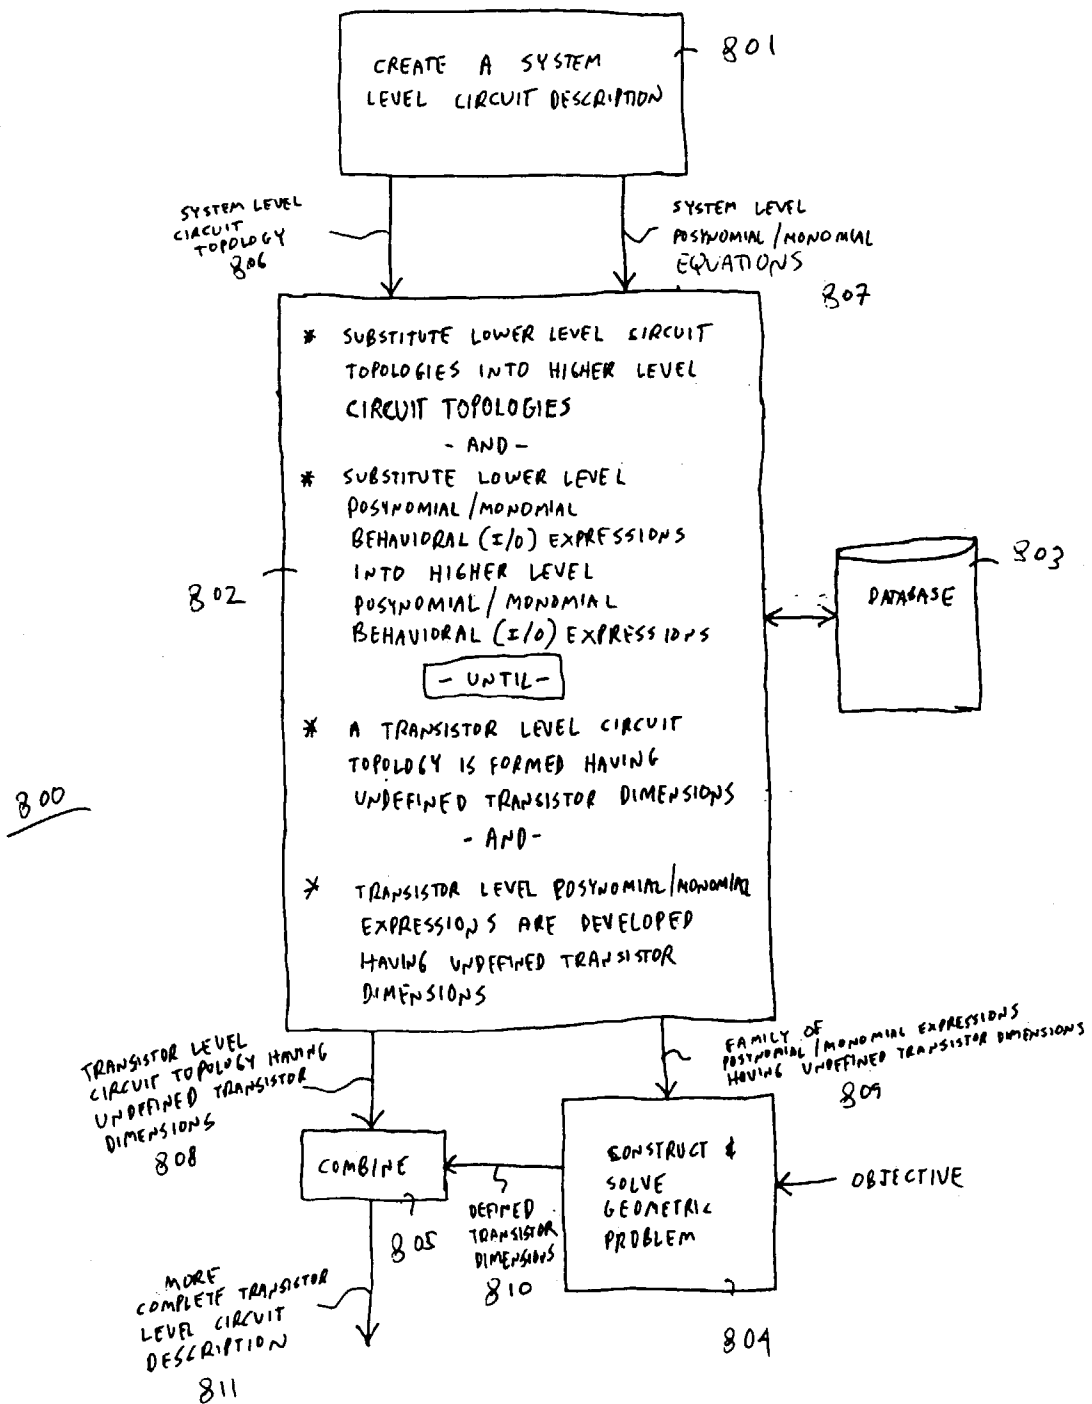 CREATE A SYSTEM
LEVEL CIRCUIT DESCRIPTION
801
SYSTEM LEVEL
CIRCUIT
TOPOLOGY
806
SYSTEM LEVEL
POSYNOMIAL/MONOMIAL
EQUATIONS
807
* SUBSTITUTE LOWER LEVEL CIRCUIT
TOPOLOGIES INTO HIGHER LEVEL
CIRCUIT TOPOLOGIES
- AND -
* SUBSTITUTE LOWER LEVEL
POSYNOMIAL/MONOMIAL
BEHAVIORAL (I/O) EXPRESSIONS
INTO HIGHER LEVEL
POSYNOMIAL/MONOMIAL
BEHAVIORAL (I/O) EXPRESSIONS
- UNTIL -
* A TRANSISTOR LEVEL CIRCUIT
TOPOLOGY IS FORMED HAVING
UNDEFINED TRANSISTOR DIMENSIONS
- AND -
* TRANSISTOR LEVEL POSYNOMIAL/MONOMIAL
EXPRESSIONS ARE DEVELOPED
HAVING UNDEFINED TRANSISTOR
DIMENSIONS
802
DATABASE
803
800
TRANSISTOR LEVEL
CIRCUIT TOPOLOGY HAVING
UNDEFINED TRANSISTOR
DIMENSIONS
808
FAMILY OF
POSYNOMIAL/MONOMIAL EXPRESSIONS
HAVING UNDEFINED TRANSISTOR DIMENSIONS
809
COMBINE
805
DEFINED
TRANSISTOR
DIMENSIONS
810
CONSTRUCT &
SOLVE
GEOMETRIC
PROBLEM
804
OBJECTIVE
MORE
COMPLETE TRANSISTOR
LEVEL CIRCUIT
DESCRIPTION
811